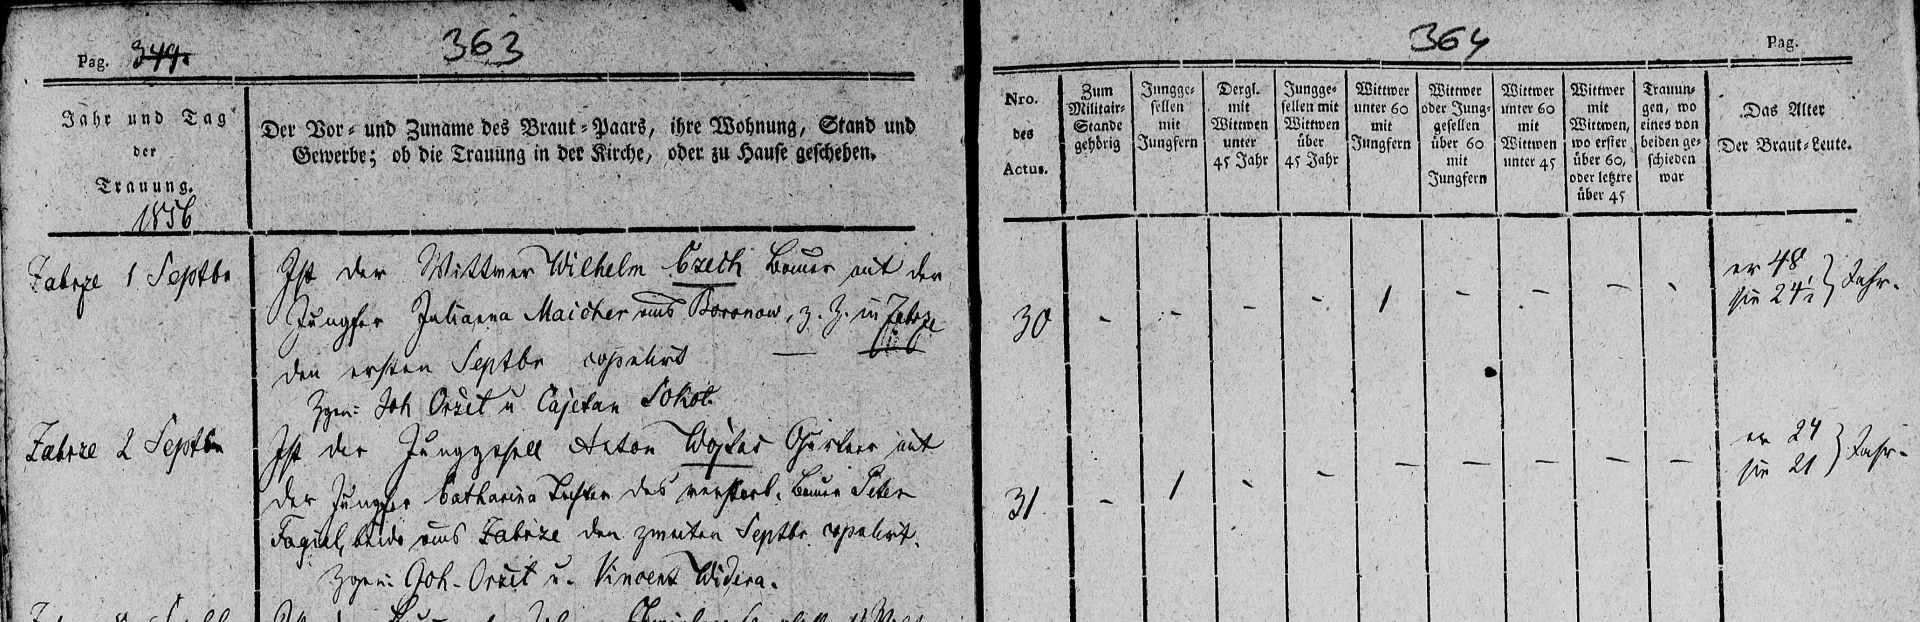 Pag. 349.
363
Jahr und Tag
der
Trauung.
1856
Der Vor- und Zuname des Braut-Paars, ihre Wohnung, Stand und
Gewerbe; ob die Trauung in der Kirche, oder zu Hause geschehen.
Zabrze 1 Septbr
Ist der Wittwer Wilhelm Czech Bauer mit der
Jungfer Julianna Maicher aus Boronow, z. Z. in Zabrze
den ersten Septbr copulirt
Zgen: Joh Orzet u Cajetan Sokol.
Zabrze 2 Septbr
Ist der Junggesell Anton Wojtas Gärtner mit
der Jungfer Catharina Tochter des verstorb. Bauer Peter
beide aus Zabrze den zweiten Septbr copulirt.
Zgen: Joh. Orzet u. Vincent Widera.
364
Pag.
Nro.
des
Actus.
Zum
Militair-
Stande
gehörig
Jungge-
sellen
mit
Jungfern
Dergl.
mit
Wittwen
unter
45 Jahr
Jungge-
sellen mit
Wittwen
über
45 Jahr
Wittwer
unter 60
mit
Jungfern
Wittwer
oder Jung-
gesellen
über 60
mit
Jungfern
Wittwer
unter 60
mit
Wittwen
unter 45
Wittwer
mit
Wittwen,
wo erster
über 60,
oder letztre
über 45
Trauun-
gen, wo
eines von
beiden ge-
schieden
war
Das Alter
Der Braut-Leute.
30 - - - - 1 - - - -
er 48
sie 24½ } Jahr.
31 - 1 - - - - - - -
er 24
sie 21 } Jahr.